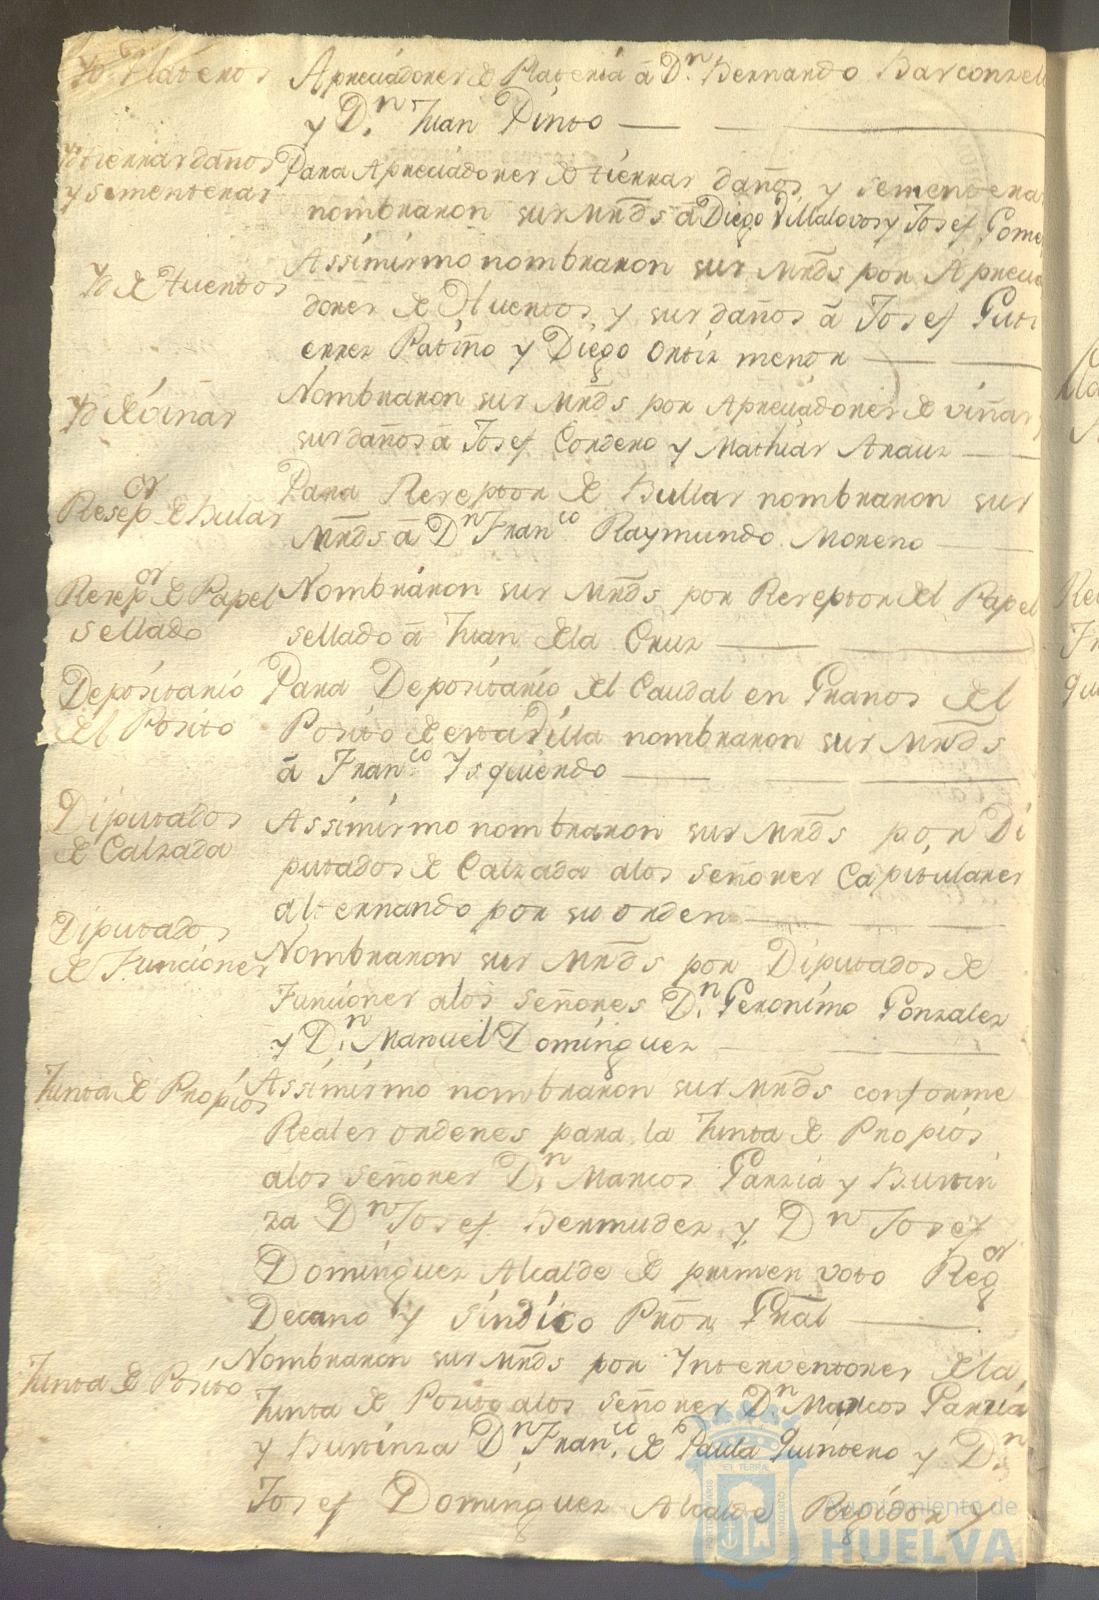 Yd Plateros
Apreciadores de Plateria â Dn. Bernardo Barconzel
y Dn. Juan Pinto
Yd tierras daños
y sementeras
Para Apreciadores de tierras daños y sementera
nombraron sus Mrds â Diego Villalovos y Josef Gome
Yd de Huertos
Assimismo nombraron sus Mrds por Aprecia
dores de Huertos y sus daños â Josef Guti
errez Patiño y Diego Ortiz menor
Yd de viñas
Nombraron sus Mrds por Apreciadores de viñas y
sus daños â Josef Cordero y Mathias Arauz
Resepor de Bulas
Para Reseptor de Bullas nombraron sus
Mrds â Dn Franco Raymundo Moreno
Resepor de Papel
sellado
Nombraron sus Mrds por Reseptor del Papel
sellado â Juan dela Cruz
Depositario
del Posito
Para Depositario del Caudal en Granos del
Posito de esta Villa nombraron sus Mrds
â Franco Ysquierdo
Diputados
de Calzada
Assimismo nombraron sus Mrds por Di
putados de Calzada alos señores Capitulares
alternando por su orden
Diputados
de Funciones
Nombraron sus Mrds por Diputados de
Funciones alos señores Dn. Geronimo Gonzales
y Dn. Manuel Dominguez
Junta de Propios
Assimismo nombraron sus Mrds conforme
Reales ordenes para la Junta de Propios
alos señores Dn. Marcos Garzia y Bustin
za Dn Josef Bermudez y Dn Josef
Dominguez Alcalde de primer voto Regor
Decano y Sindico Pror Gral
Junta de Posito
Nombraron sus Mrds por Interventores dela
Junta de Posito alos señores Dn. Marcos Garzia
y Bustinza Dn Franco de Paula Quintero y Dn.
Josef Dominguez Alcalde Regidor y
Ayuntamiento de
HUELVA